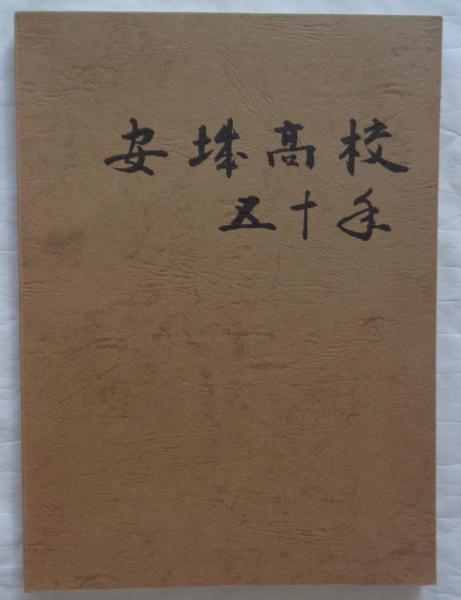 安城高校
五十年